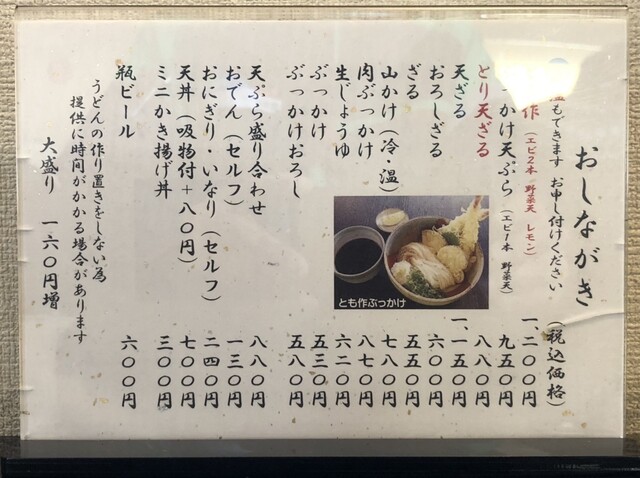 おしながき (税込価格)
もできます お申し付けください
作 (エビ2本 野菜天 レモン) 一、二〇〇円
っかけ天ぷら (エビ1本 野菜天) 九五〇円
とり天ざる 八八〇円
天ざる 一、一五〇円
おろしざる 六〇〇円
ざる 五五〇円
山かけ (冷・温) 七八〇円
肉ぶっかけ 八七〇円
生じょうゆ 六二〇円
ぶっかけ 五三〇円
ぶっかけおろし 五八〇円
とも作ぶっかけ
天ぷら盛り合わせ 八八〇円
おでん (セルフ) 一三〇円
おにぎり・いなり (セルフ) 二四〇円
天丼 (吸物付+八〇円) 七〇〇円
ミニかき揚げ丼 三〇〇円
瓶ビール 六〇〇円
うどんの作り置きをしない為
提供に時間がかかる場合があります
大盛り 一六〇円増